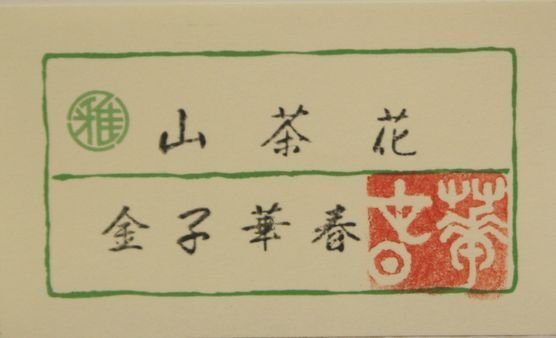 雅
山茶花
金子華春
華春